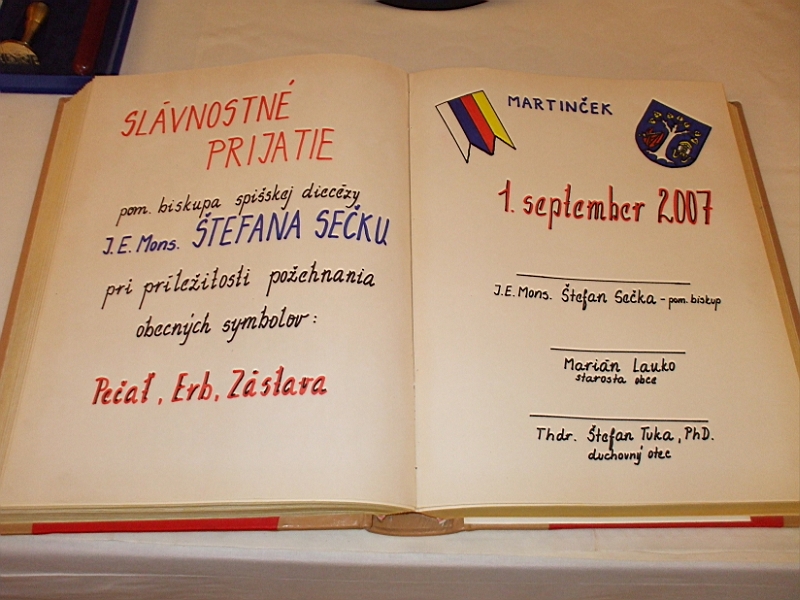 SLÁVNOSTNÉ
PRIJATIE
pom. biskupa spišskej diecézy
J.E. Mons. ŠTEFANA SEČKU
pri príležitosti požehnania
obecných symbolov:
Pečať, Erb, Zástava
MARTINČEK
1. september 2007
J.E. Mons. Štefan Sečka - pom. biskup
Marián Lauko
starosta obce
Thdr. Štefan Tuka, PhD.
duchovný otec